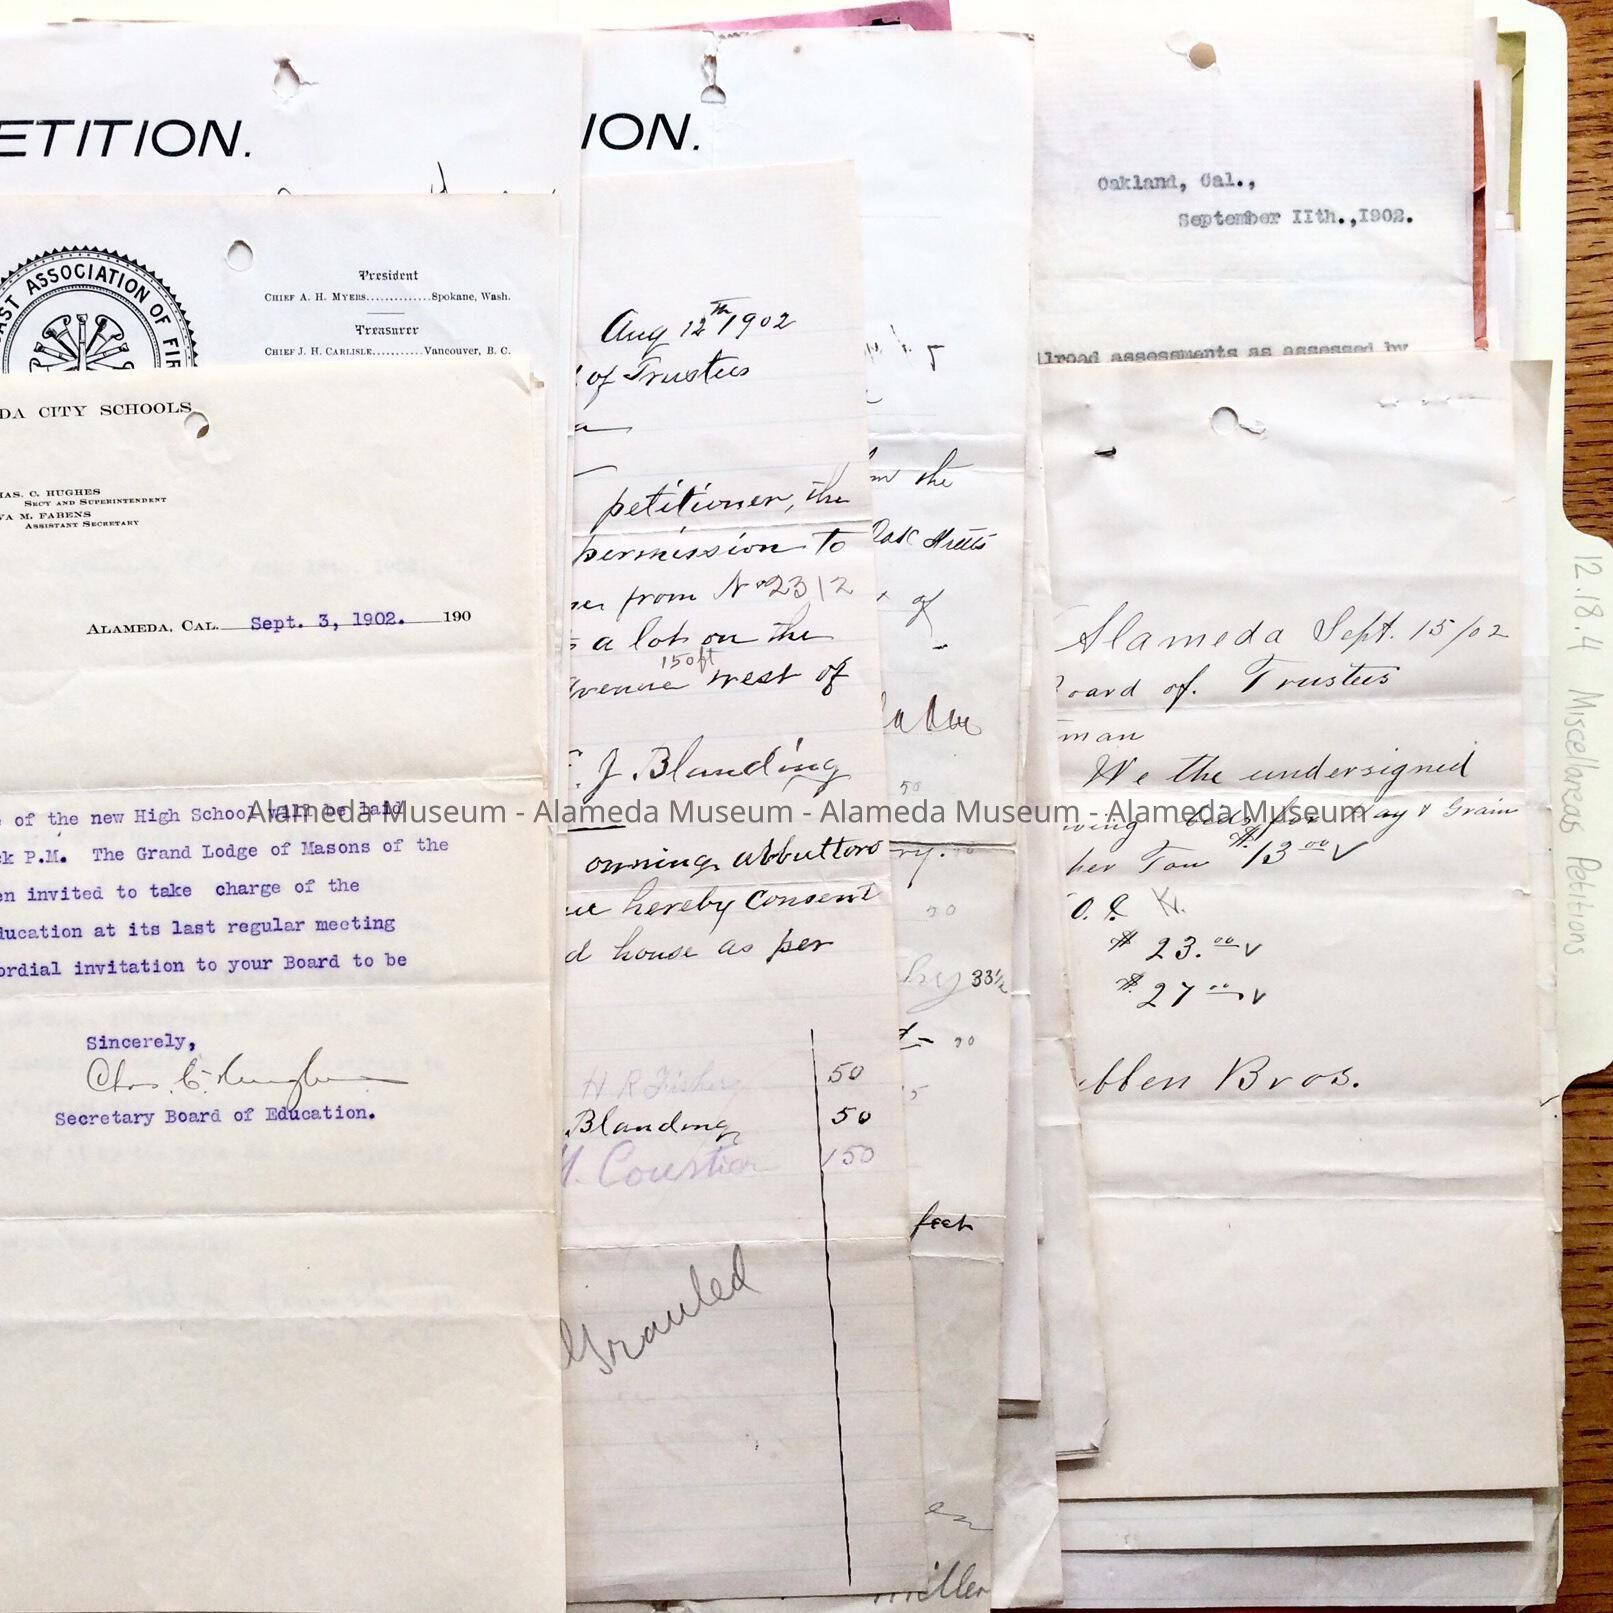 ETITION.
AST ASSOCIATION OF FIR
President
CHIEF A. H. MYERS.............Spokane, Wash.
Treasurer
CHIEF J. H. CARLISLE...........Vancouver, B. C.
DA CITY SCHOOLS
HAS. C. HUGHES
SECY AND SUPERINTENDENT
VA M. FAHENS
ASSISTANT SECRETARY
ALAMEDA, CAL. Sept. 3, 1902. 190
of the new High School will be laid
ck P.M. The Grand Lodge of Masons of the
en invited to take charge of the
ducation at its last regular meeting
ordial invitation to your Board to be
Sincerely,
Chas. C. Hughes
Secretary Board of Education.
ION.
Aug 12th 1902
of Trustees
petitioner, the
permission to
from No 2312
a lot on the
150 ft
avenue west of
J. Blanding
owning abbuttors
hereby consent
d house as per
H R Fisher 50
Blanding 50
150
Granted
the
Oak Streets
of
50
50
33 1/2
feet
miller
Oakland, Cal.,
September IIth.,I902.
ilroad assessments as assessed by
Alameda Sept. 15/02
Board of. Trustees
man
We the undersigned
wing bids for Hay & Grain
per Ton $13.00
O. K.
$ 23.00
$ 27.00
bben Bros.
12.18.4 Miscellaneous Petitions
Alameda Museum - Alameda Museum - Alameda Museum - Alameda Museum